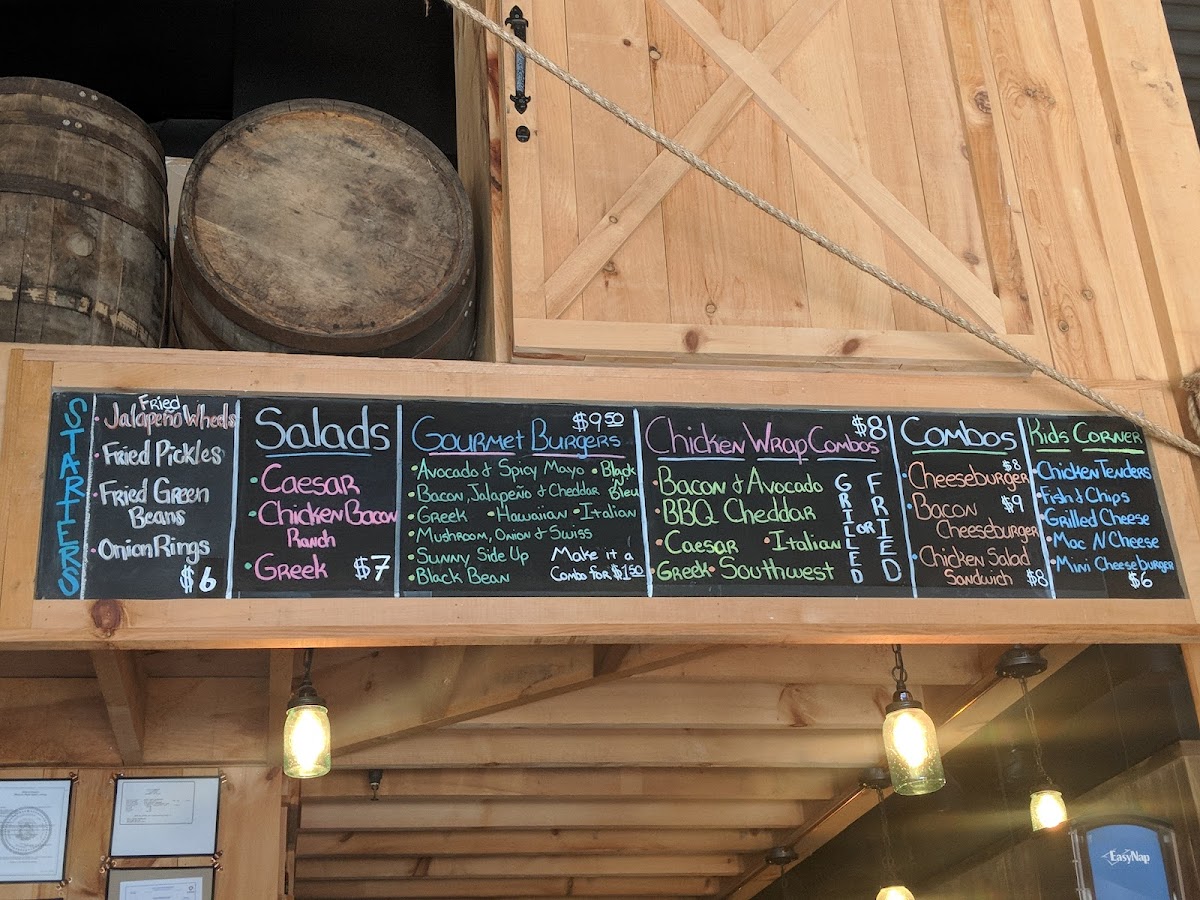 STARTERS
Fried
• Jalapeño Wheels
• Fried Pickles
• Fried Green
Beans
• Onion Rings
$6
Salads
• Caesar
• Chicken Bacon
Ranch
• Greek $7
Gourmet Burgers $9.50
• Avocado & Spicy Mayo • Black N Bleu
• Bacon, Jalapeño & Cheddar
• Greek • Hawaiian • Italian
• Mushroom, Onion & Swiss
• Sunny Side Up
• Black Bean
Make it a
Combo for $1.50
Chicken Wrap Combos $8
• Bacon & Avocado
• BBQ Cheddar
• Caesar • Italian
• Greek • Southwest
GRILLED
OR
FRIED
Combos
• Cheeseburger $8
• Bacon $9
Cheeseburger
• Chicken Salad
Sandwich $8
Kids Corner
• Chicken Tenders
• Fish & Chips
• Grilled Cheese
• Mac N Cheese
• Mini Cheeseburger
$6
EasyNap